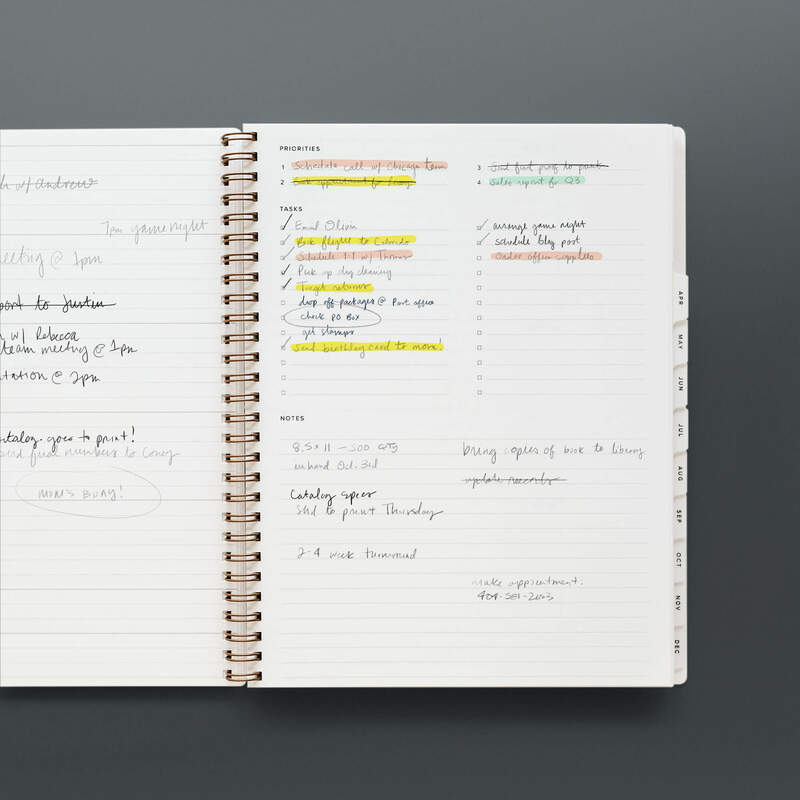 w/ andrew
7pm game night
meeting @ 1pm
port to Justin
w/ Rebecca
team meeting @ 1pm
tation @ 2pm
catalog goes to print!
send final numbers to Corey
MOM'S BDAY!
PRIORITIES
1 Schedule call w/ Chicago team
2 appointment for
3 Send final to print
4 Sales report for Q3
TASKS
Email Olivia
Book flight to Colorado
Schedule 1:1 w/ Thomas
Pick up dry cleaning
Target returns
drop off packages @ Post office
check PO Box
get stamps
Send birthday card to mom!
arrange game night
schedule blog post
Order office supplies
NOTES
8.5 x 11 — 500 QTY
in hand Oct. 31d
Catalog specs
Send to print Thursday
2-4 week turnaround
bring copies of book to library
update records
make appointment.
404-581-2003
APR
MAY
JUN
JUL
AUG
SEP
OCT
NOV
DEC